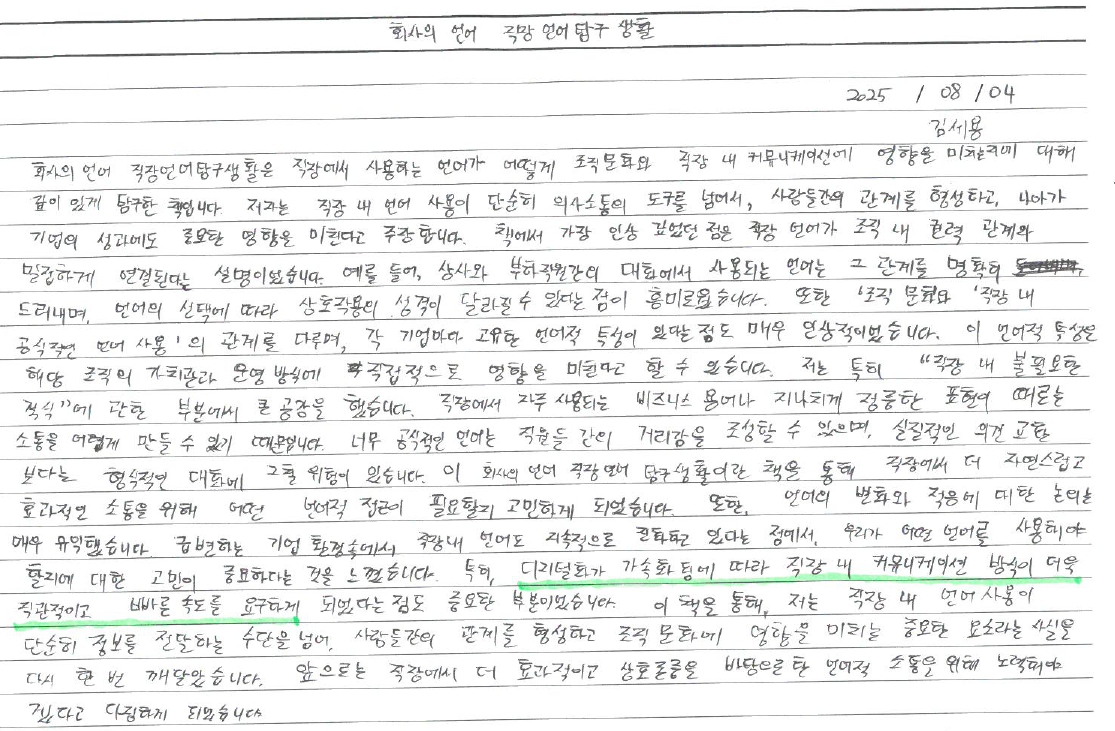 회사의 언어 직장 언어 탐구 생활
2025 / 08 / 04
김세용
회사의 언어 직장언어탐구생활은 직장에서 사용하는 언어가 어떻게 조직문화와 직장 내 커뮤니케이션에 영향을 미치는지에 대해
깊이 있게 탐구한 책입니다. 저자는 직장 내 언어 사용이 단순히 의사소통의 도구를 넘어서, 사람들간의 관계를 형성하고, 나아가
기업의 성과에도 중요한 영향을 미친다고 주장합니다. 책에서 가장 인상 깊었던 점은 직장 언어가 조직 내 권력 관계와
밀접하게 연결된다는 설명이었습니다. 예를 들어, 상사와 부하직원간의 대화에서 사용되는 언어는 그 관계를 명확히
드러내며, 언어의 선택에 따라 상호작용의 성격이 달라질 수 있다는 점이 흥미로웠습니다. 또한 '조직 문화와 '직장 내
공식적인 언어 사용'의 관계를 다루며, 각 기업마다 고유한 언어적 특성이 있다는 점도 매우 인상적이었습니다. 이 언어적 특성은
해당 조직의 가치관과 운영 방식에 직접적으로 영향을 미친다고 할 수 있습니다. 저는 특히 "직장 내 불필요한
격식"에 관한 부분에서 큰 공감을 했습니다. 직장에서 자주 사용되는 비즈니스 용어나 지나치게 정중한 표현이 때로는
소통을 어렵게 만들 수 있기 때문입니다. 너무 공식적인 언어는 직원들 간의 거리감을 조성할 수 있으며, 실질적인 의견 교환
보다는 형식적인 대화에 그칠 위험이 있습니다. 이 회사의 언어 직장 언어 탐구생활이란 책을 통해 직장에서 더 자연스럽고
효과적인 소통을 위해 어떤 언어적 접근이 필요할지 고민하게 되었습니다. 또한, 언어의 변화와 적응에 대한 논의는
매우 유익했습니다. 급변하는 기업 환경속에서 직장내 언어도 지속적으로 진화하고 있다는 점에서, 우리가 어떤 언어를 사용해야
할지에 대한 고민이 중요하다는 것을 느꼈습니다. 특히, 디지털화가 가속화 됨에 따라 직장 내 커뮤니케이션 방식이 더욱
직관적이고 빠른 속도를 요구하게 되었다는 점도 중요한 부분이었습니다. 이 책을 통해, 저는 직장 내 언어 사용이
단순히 정보를 전달하는 수단을 넘어, 사람들간의 관계를 형성하고 조직 문화에 영향을 미치는 중요한 요소라는 사실을
다시 한 번 깨달았습니다. 앞으로는 직장에서 더 효과적이고 상호존중을 바탕으로 한 언어적 소통을 위해 노력해야
겠다고 다짐하게 되었습니다